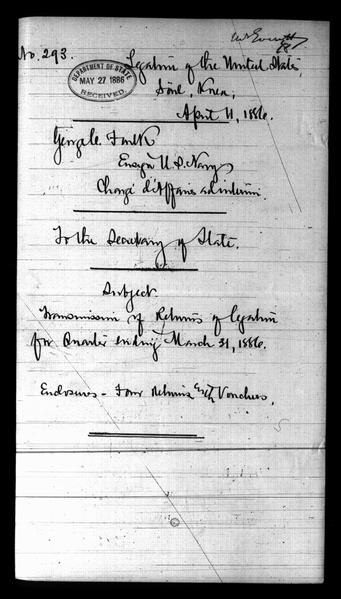 No. 293.
Legation of the United States,
Söul, Korea,
April 11, 1886.
DEPARTMENT OF STATE
MAY 27 1886
RECEIVED
George C. Foulk
Ensign U.S. Navy
Chargé d'Affaires ad interim.
To the Secretary of State.
Subject.
Transmission of Returns of Legation
for Quarter ending March 31, 1886.
Enclosures - Four Returns with Vouchers.
5